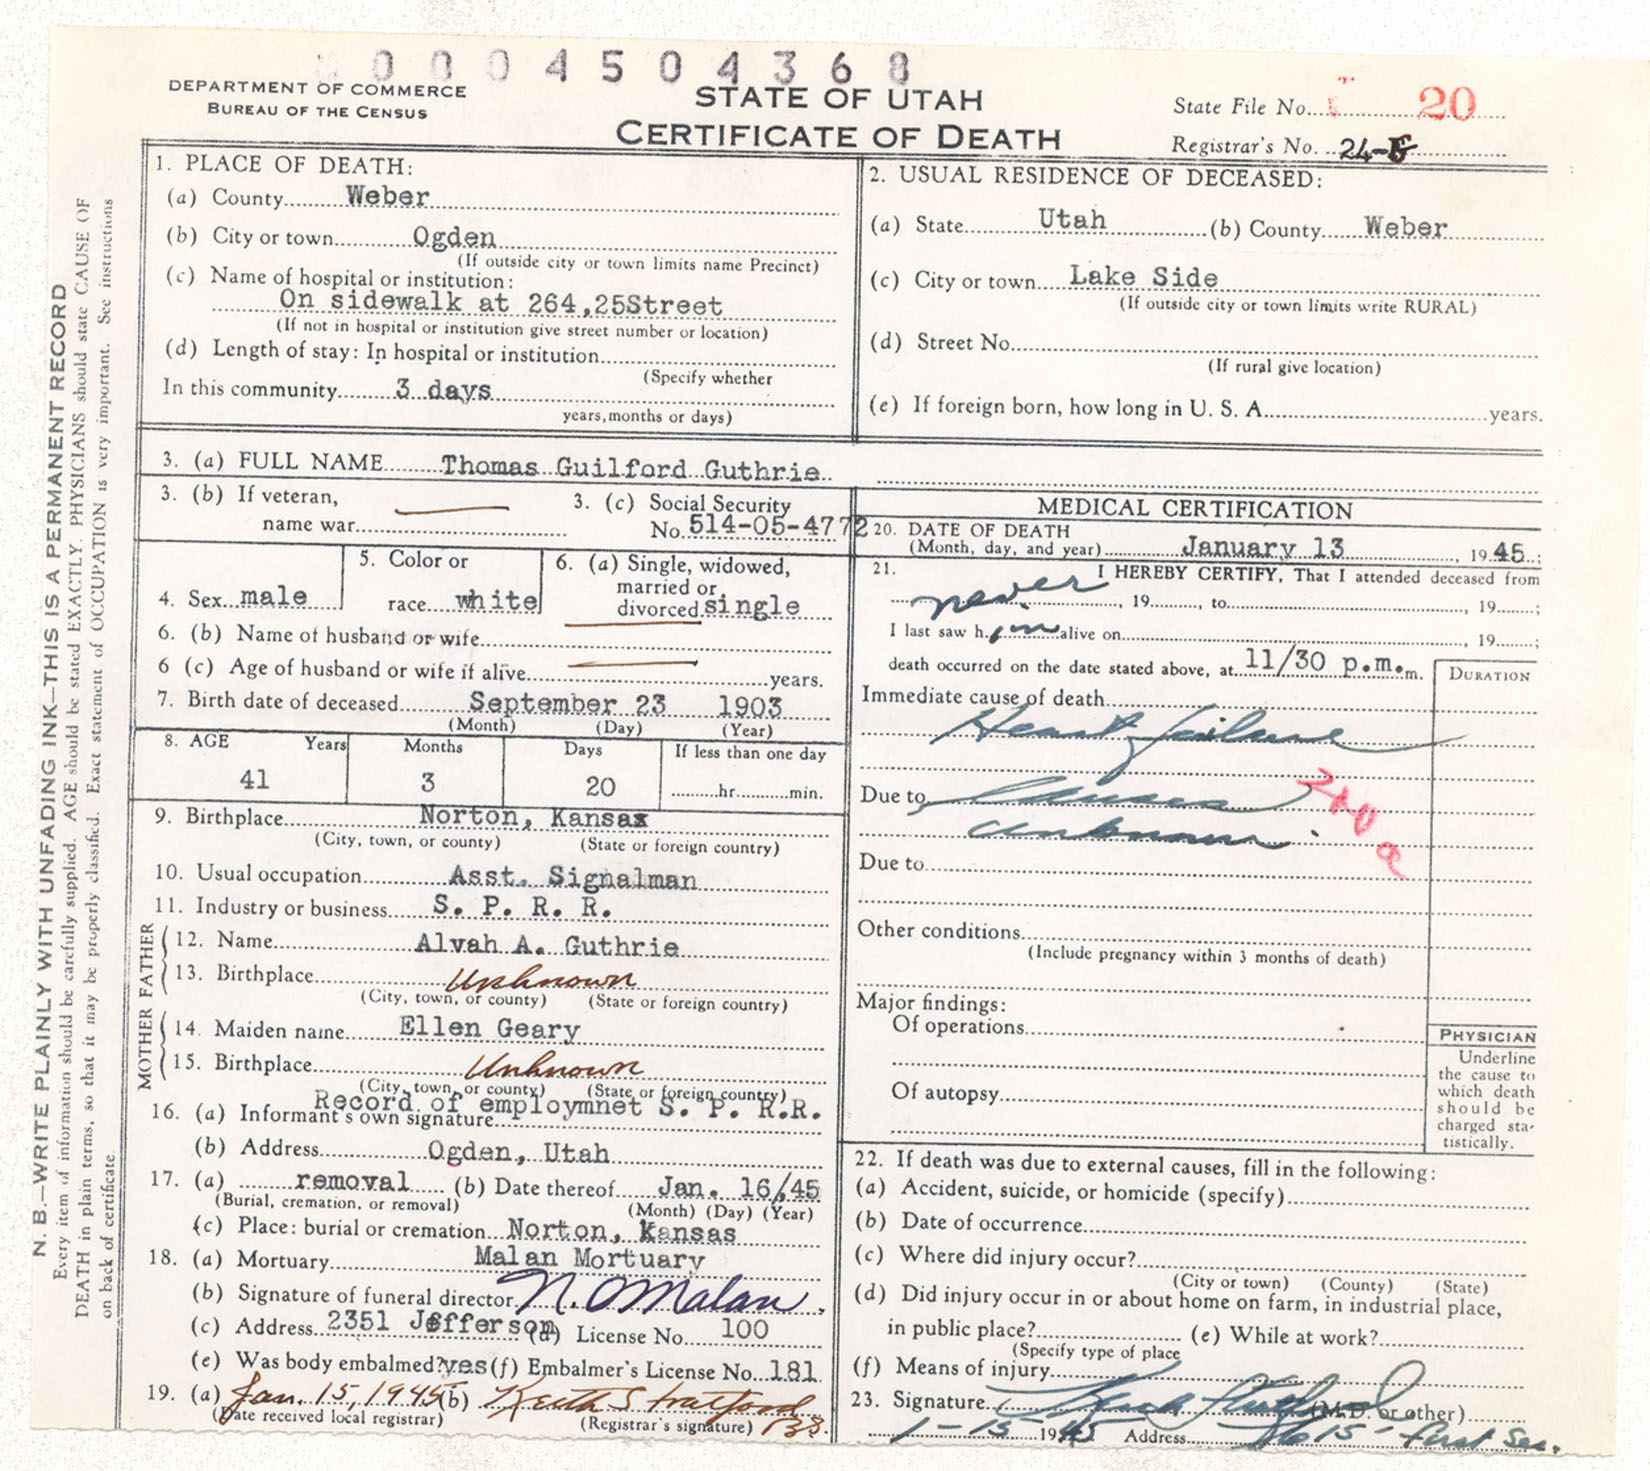 0004504368
DEPARTMENT OF COMMERCE
BUREAU OF THE CENSUS
STATE OF UTAH
CERTIFICATE OF DEATH
State File No. 20
Registrar's No. 24-
1. PLACE OF DEATH:
(a) County Weber
(b) City or town Ogden
(If outside city or town limits name Precinct)
(c) Name of hospital or institution:
On sidewalk at 264,25Street
(If not in hospital or institution give street number or location)
(d) Length of stay: In hospital or institution
(Specify whether
In this community 3 days
years, months or days)
2. USUAL RESIDENCE OF DECEASED:
(a) State Utah (b) County Weber
(c) City or town Lake Side
(If outside city or town limits write RURAL)
(d) Street No.
(If rural give location)
(e) If foreign born, how long in U. S. A. years.
3. (a) FULL NAME Thomas Guilford Guthrie
3. (b) If veteran,
name war
3. (c) Social Security
No. 514-05-4772
4. Sex male
5. Color or
race white
6. (a) Single, widowed,
married or
divorced single
6. (b) Name of husband or wife
6 (c) Age of husband or wife if alive years.
7. Birth date of deceased September 23 1903
(Month) (Day) (Year)
8. AGE Years Months Days If less than one day
41 3 20 hr. min.
9. Birthplace Norton, Kansas
(City, town, or county) (State or foreign country)
10. Usual occupation Asst. Signalman
11. Industry or business S. P. R. R.
FATHER
12. Name Alvah A. Guthrie
13. Birthplace Unknown
(City, town, or county) (State or foreign country)
MOTHER
14. Maiden name Ellen Geary
15. Birthplace Unknown
(City, town, or county) (State or foreign country)
Record of employmnet S. P. R.R.
16. (a) Informant's own signature
(b) Address Ogden, Utah
17. (a) removal (b) Date thereof Jan. 16/45
(Burial, cremation, or removal) (Month) (Day) (Year)
(c) Place: burial or cremation Norton, Kansas
18. (a) Mortuary Malan Mortuary
(b) Signature of funeral director N. O Malan.
(c) Address 2351 Jefferson (d) License No. 100
(e) Was body embalmed? yes (f) Embalmer's License No. 181
19. (a) Jan. 15, 1945 (b) Keith S Stratford
(Date received local registrar) (Registrar's signature)
MEDICAL CERTIFICATION
20. DATE OF DEATH
(Month, day, and year) January 13, 1945;
21. I HEREBY CERTIFY, That I attended deceased from
never, 19, to, 19;
I last saw h im alive on, 19;
death occurred on the date stated above, at 11/30 p.m. m.
DURATION
Immediate cause of death
Heart failure
Due to Causes
unknown.
200 a
Due to
Other conditions
(Include pregnancy within 3 months of death)
Major findings:
Of operations
Of autopsy
PHYSICIAN
Underline
the cause to
which death
should be
charged sta-
tistically.
22. If death was due to external causes, fill in the following:
(a) Accident, suicide, or homicide (specify)
(b) Date of occurrence
(c) Where did injury occur?
(City or town) (County) (State)
(d) Did injury occur in or about home on farm, in industrial place,
in public place? (e) While at work?
(Specify type of place
(f) Means of injury
23. Signature (M.D. or other)
1-15 1945 Address First Sec.
N. B.—WRITE PLAINLY WITH UNFADING INK—THIS IS A PERMANENT RECORD
Every item of information should be carefully supplied. AGE should be stated EXACTLY. PHYSICIANS should state CAUSE OF
DEATH in plain terms, so that it may be properly classified. Exact statement of OCCUPATION is very important. See instructions
on back of certificate.